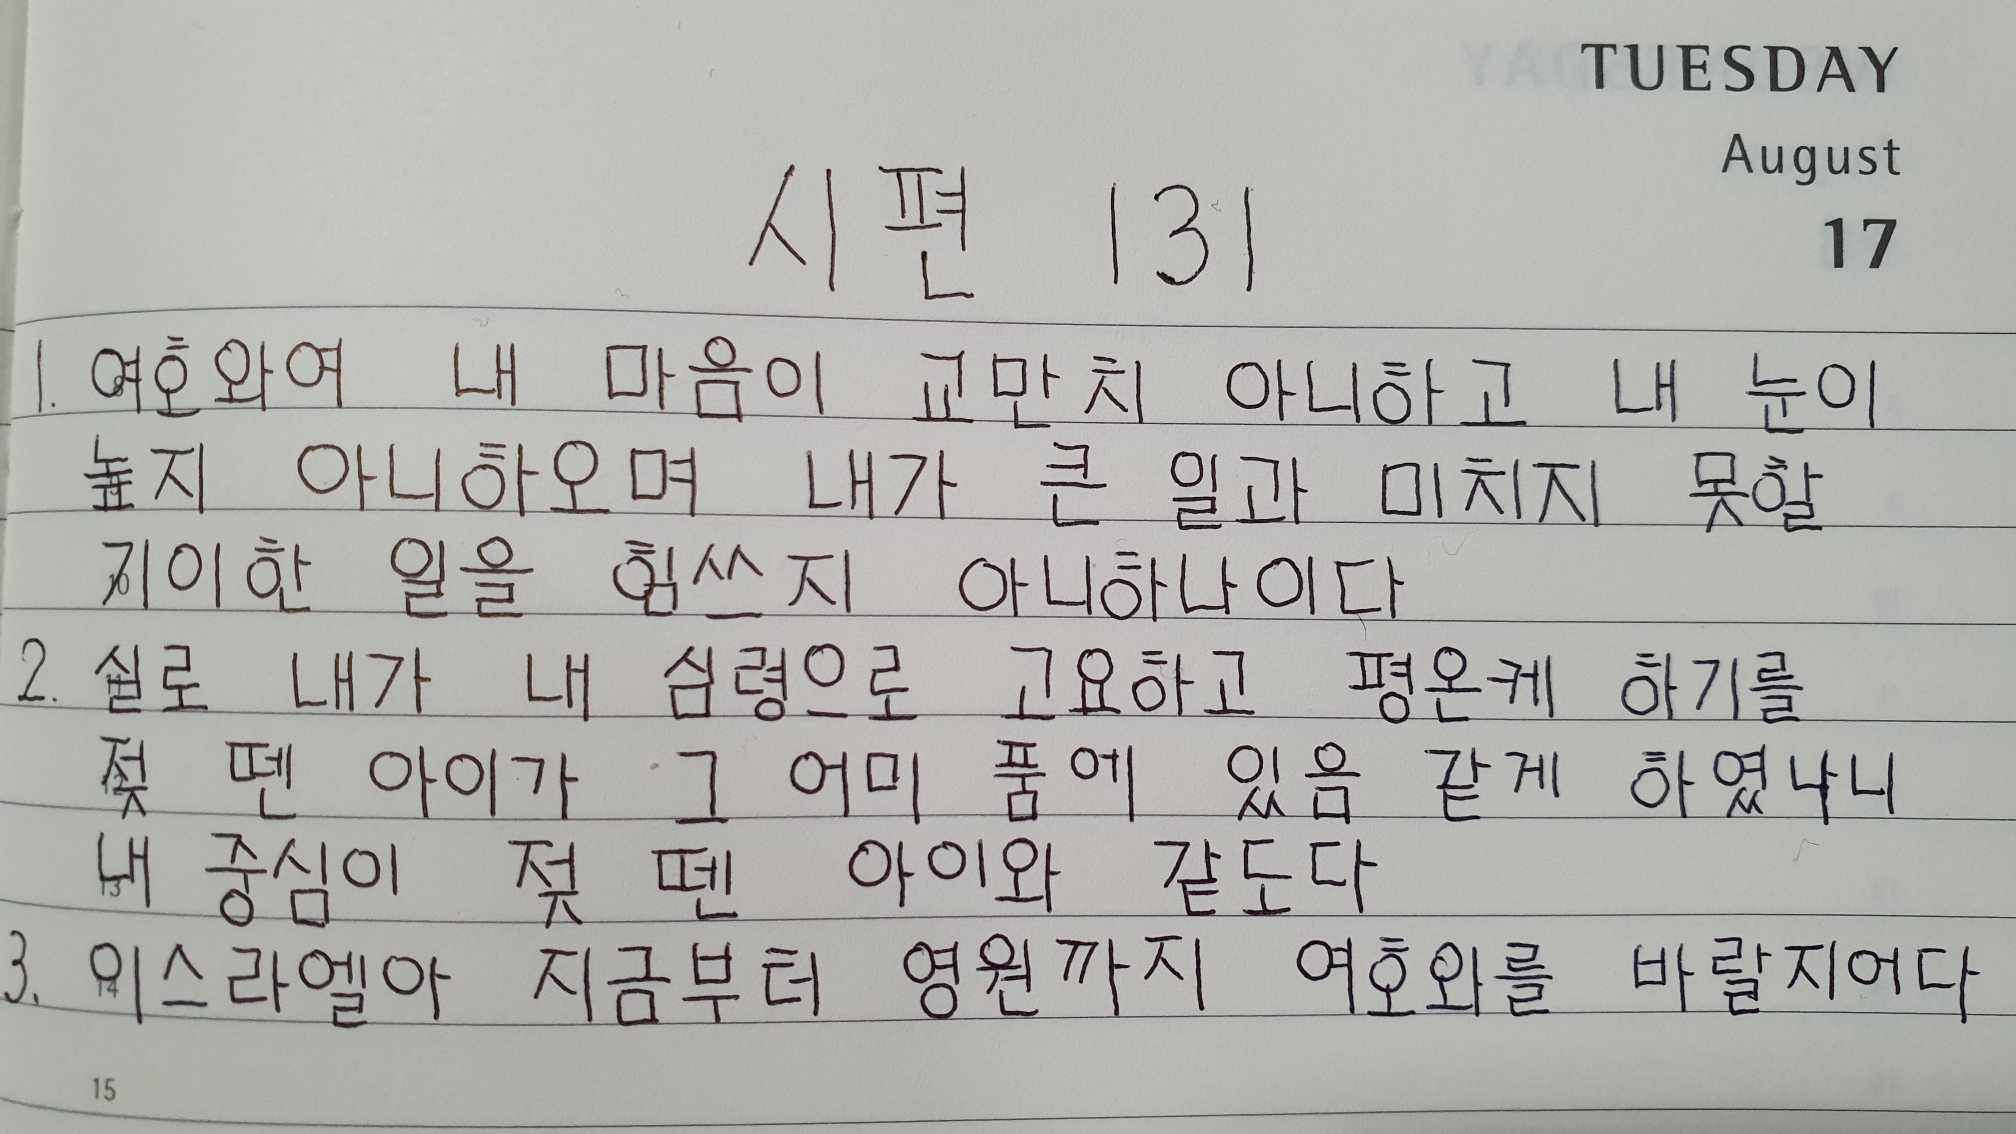 TUESDAY
August
17
시편 131
1. 여호와여 내 마음이 교만치 아니하고 내 눈이
높지 아니하오며 내가 큰 일과 미치지 못할
기이한 일을 힘쓰지 아니하나이다
2. 실로 내가 내 심령으로 고요하고 평온케 하기를
젖 뗀 아이가 그 어미 품에 있음 같게 하였나니
내 중심이 젖 뗀 아이와 같도다
3. 이스라엘아 지금부터 영원까지 여호와를 바랄지어다
15